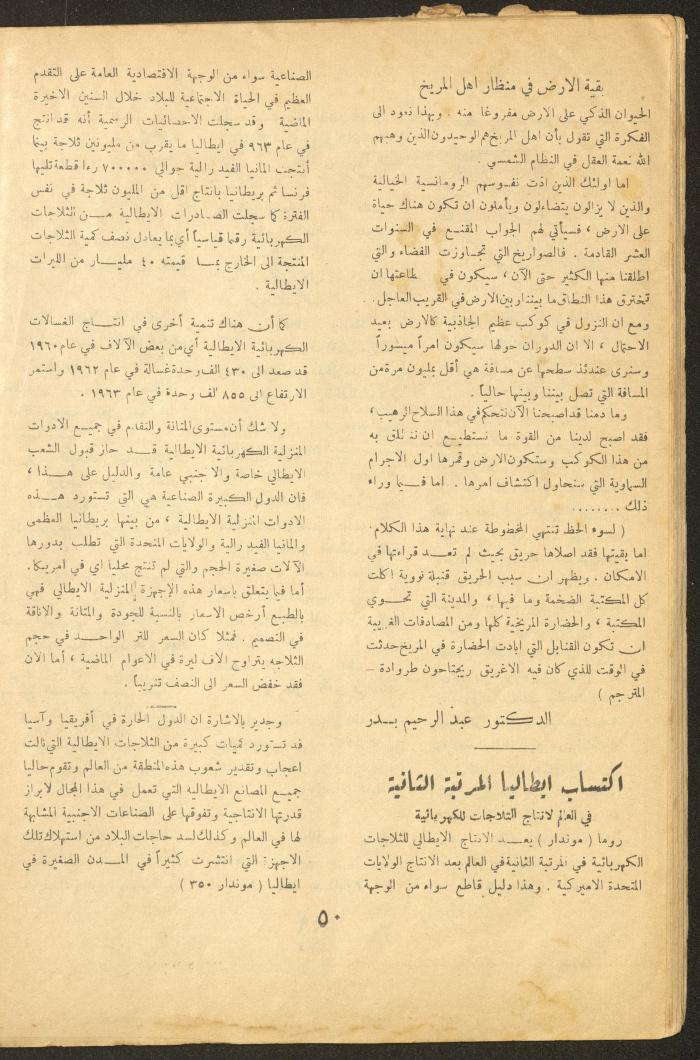 بقية الارض في منظار اهل المريخ
الحيوان الذكي على الارض مفروغا منه . وبهذا نعود الى
الفكرة التي تقول بأن اهل المريخ هم الوحيدون الذين وهبهم
الله نعمة العقل في النظام الشمسي .
اما اولئك الذين اذت نفوسهم الرومانسية الخيالية
والذين لا يزالون يتضاءلون ويأملون ان تكون هناك حياة
على الارض ، فسيأتي لهم الجواب المقنع في السنوات
العشر القادمة . فالصواريخ التي تجاوزت الفضاء والتي
اطلقنا منها الكثير حتى الآن ، سيكون في طاعتها ان
تخترق هذا النطاق ما بيننا وبين الارض في القريب العاجل .
ومع ان النزول في كوكب عظيم الجاذبية كالارض بعيد
الاحتمال ، الا ان الدوران حولها سيكون امراً ميسوراً
وسنرى عندئذ سطحها عن مسافة هي أقل بمليون مرة من
المسافة التي تصل بيننا وبينها حالياً .
وما دمنا قد اصبحنا الآن نتحكم في هذا السلاح الرهيب ،
فقد اصبح لدينا من القوة ما نستطيع ان ننطلق به
من هذا الكوكب وستكون الارض وقمرها اول الاجرام
السماوية التي سنحاول اكتشاف امرها . اما فيما وراء
ذلك ........
( لسوء الحظ تنتهي المخطوطة عند نهاية هذا الكلام .
اما بقيتها فقد اصلاها حريق بحيث لم تعد قراءتها في
الامكان . ويظهر ان سبب الحريق قنبلة نووية اكلت
كل المكتبة الضخمة وما فيها ، والمدينة التي تحوي
المكتبة ، والحضارة المريخية كلها ومن المصادفات الغريبة
ان تكون القنابل التي ابادت الحضارة في المريخ حدثت
في الوقت للذي كان فيه الاغريق ريجتاحون طروادة –
المترجم )
الدكتور عبد الرحيم بدر
اكتساب ايطاليا المرتبة الثانية
في العالم لانتاج الثلاجات للكهربائية
روما ( موندار ) يعد الانتاج الايطالي للثلاجات
الكهربائية في المرتبة الثانية في العالم بعد الانتاج الولايات
المتحدة الاميركية . وهذا دليل قاطع سواء من الوجهة
الصناعية سواء من الوجهة الاقتصادية العامة على التقدم
العظيم في الحياة الاجتماعية للبلاد خلال السنين الاخيرة
الماضية . وقد سجلت الاحصائيات الرسمية أنه قد انتج
في عام ٩٦٣ في ايطاليا ما يقرب من مليونين ثلاجة بينما
أنتجت المانيا الفيدرالية حوالي ٧٠٠٠٠٠ قطعة تليها
فرنسا ثم بريطانيا بانتاج اقل من المليون ثلاجة في نفس
الفترة كما سجلت الصادرات الايطالية من الثلاجات
الكهربائية رقما قياسياً أي بما يعادل نصف كمية الثلاجات
المنتجة الى الخارج بما قيمته ٤٠ مليار من الليرات
الايطالية .
كما أن هناك تنمية أخرى في انتاج الغسالات
الكهربائية الايطالية أي من بعض الآلاف في عام ١٩٦٠
قد صعد الى ٤٣٠ الف وحدة غسالة في عام ١٩٦٢ واستمر
الارتفاع الى ٨٥٥ الف وحدة في عام ١٩٦٣ .
ولا شك أن مستوى المتانة والتقدم في جميع الادوات
المنزلية الكهربائية الايطالية قد حاز قبول الشعب
الايطالي خاصة والاجنبي عامة والدليل على هذا ،
فان الدول الكبيرة الصناعية هي التي تستورد هذه
الادوات المنزلية الايطالية ، من بينها بريطانيا العظمى
والمانيا الفيدرالية والولايات المتحدة التي تطلب بدورها
الآلات صغيرة الحجم والتي لم تنتج محليا اي في امريكا .
أما فيما يتعلق بأسعار هذه الاجهزة المنزلية الايطالي فهي
بالطبع أرخص الاسعار بالنسبة للجودة والمتانة والاناقة
في التصميم . فمثلا كان السعر للتر الواحد في حجم
الثلاجه يتراوح آلاف ليرة في الاعوام الماضية ، أما الآن
فقد خفض السعر الى النصف تقريباً .
وجدير بالاشارة ان الدول الحارة في أفريقيا وآسيا
قد تستورد كميات كبيرة من الثلاجات الايطالية التي نالت
اعجاب وتقدير شعوب هذه المنطقة من العالم وتقوم حاليا
جميع المصانع الايطاليه التي تعمل في هذا المجال لابراز
قدرتها الانتاجية وتفوقها على الصناعات الاجنبية المشابهة
لها في العالم وكذلك لسد حاجات البلاد من استهلاك تلك
الاجهزة التي انتشرت كثيراً في المدن الصغيرة في
ايطاليا ( موندار ٣٥٠ )
٥٠